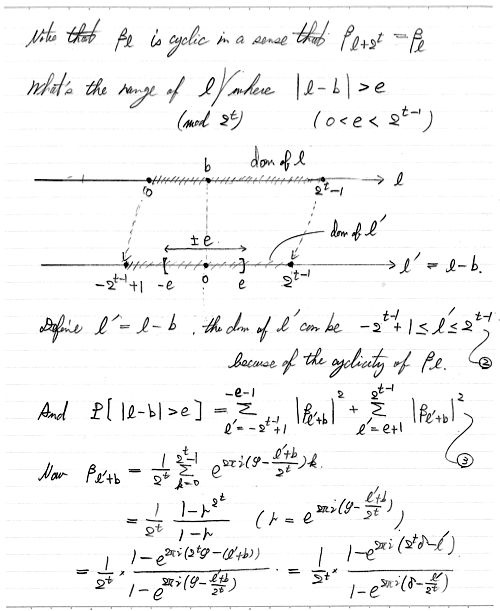 Note that βl is cyclic in a sense that β_{l+2^t} = β_l
What's the range of l where |l-b| > e
(mod 2^t) (0<e<2^{t-1})
b dom of l
0 2^t-1 l
±e dom of l'
-2^{t-1}+1 -e 0 e 2^{t-1} l' = l-b.
Define l' = l-b, the dom of l' can be -2^{t-1}+1 ≤ l' ≤ 2^{t-1}
because of the cyclicity of βl. ②
And P[|l-b|>e] = Σ_{l'=-2^{t-1}+1}^{-e-1} |β_{l'+b}|^2 + Σ_{l'=e+1}^{2^{t-1}} |β_{l'+b}|^2
③
Now β_{l'+b} = 1/2^t Σ_{k=0}^{2^t-1} e^{2πi(φ-(l'+b)/2^t)k}
= 1/2^t (1-r^{2^t})/(1-r) (r = e^{2πi(φ-(l'+b)/2^t)})
= 1/2^t × (1-e^{2πi(2^tφ-(l'+b))})/(1-e^{2πi(φ-(l'+b)/2^t)}) = 1/2^t × (1-e^{2πi(2^tδ-l')})/(1-e^{2πi(δ-l'/2^t)})